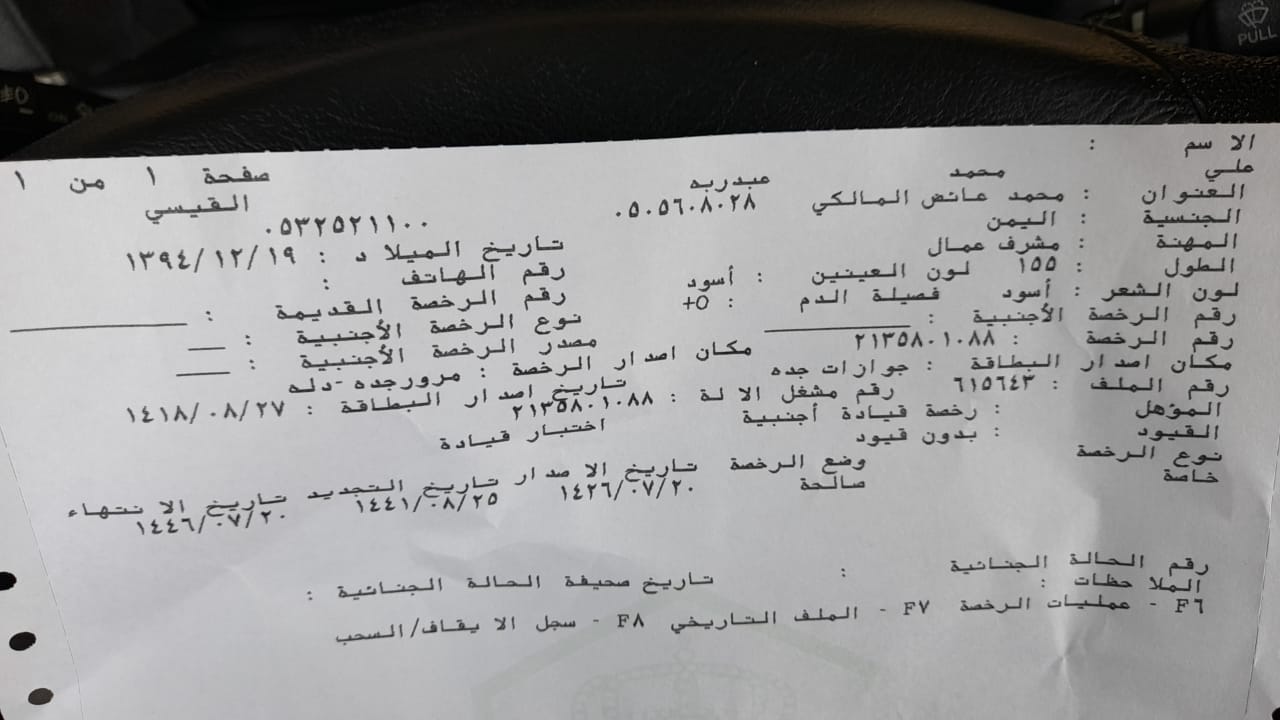 PULL
صفحة ١ من ١
الاسم :
علي محمد عبدربه القيسي
العنوان : محمد عائض المالكي ٠٥٠٥٦٠٨٠٢٨ ٠٥٣٢٥٢١١٠٠
الجنسية : اليمن تاريخ الميلاد : ١٣٩٤/١٢/١٩
المهنة : مشرف عمال رقم الهاتف :
الطول : ١٥٥ لون العينين : أسود رقم الرخصة القديمة :
لون الشعر : أسود فصيلة الدم : O+ نوع الرخصة الأجنبية :
رقم الرخصة الأجنبية : مصدر الرخصة الأجنبية :
رقم الرخصة : ٢١٣٥٨٠١٠٨٨ مكان اصدار الرخصة : مرورجده-دله
مكان اصدار البطاقة : جوازات جده تاريخ اصدار البطاقة : ١٤١٨/٠٨/٢٧
رقم الملف : ٦١٥٦٤٣ رقم مشغل الالة : ٢١٣٥٨٠١٠٨٨
المؤهل : رخصة قيادة أجنبية اختبار قيادة
القيود : بدون قيود
نوع الرخصة وضع الرخصة تاريخ الاصدار تاريخ التجديد تاريخ الانتهاء
خاصة صالحة ١٤٢٦/٠٧/٢٠ ١٤٤١/٠٨/٢٥ ١٤٤٦/٠٧/٢٠
رقم الحالة الجنائية : تاريخ صحيفة الحالة الجنائية :
الملاحظات :
F٦ - عمليات الرخصة F٧ - الملف التاريخي F٨ - سجل الايقاف/السحب